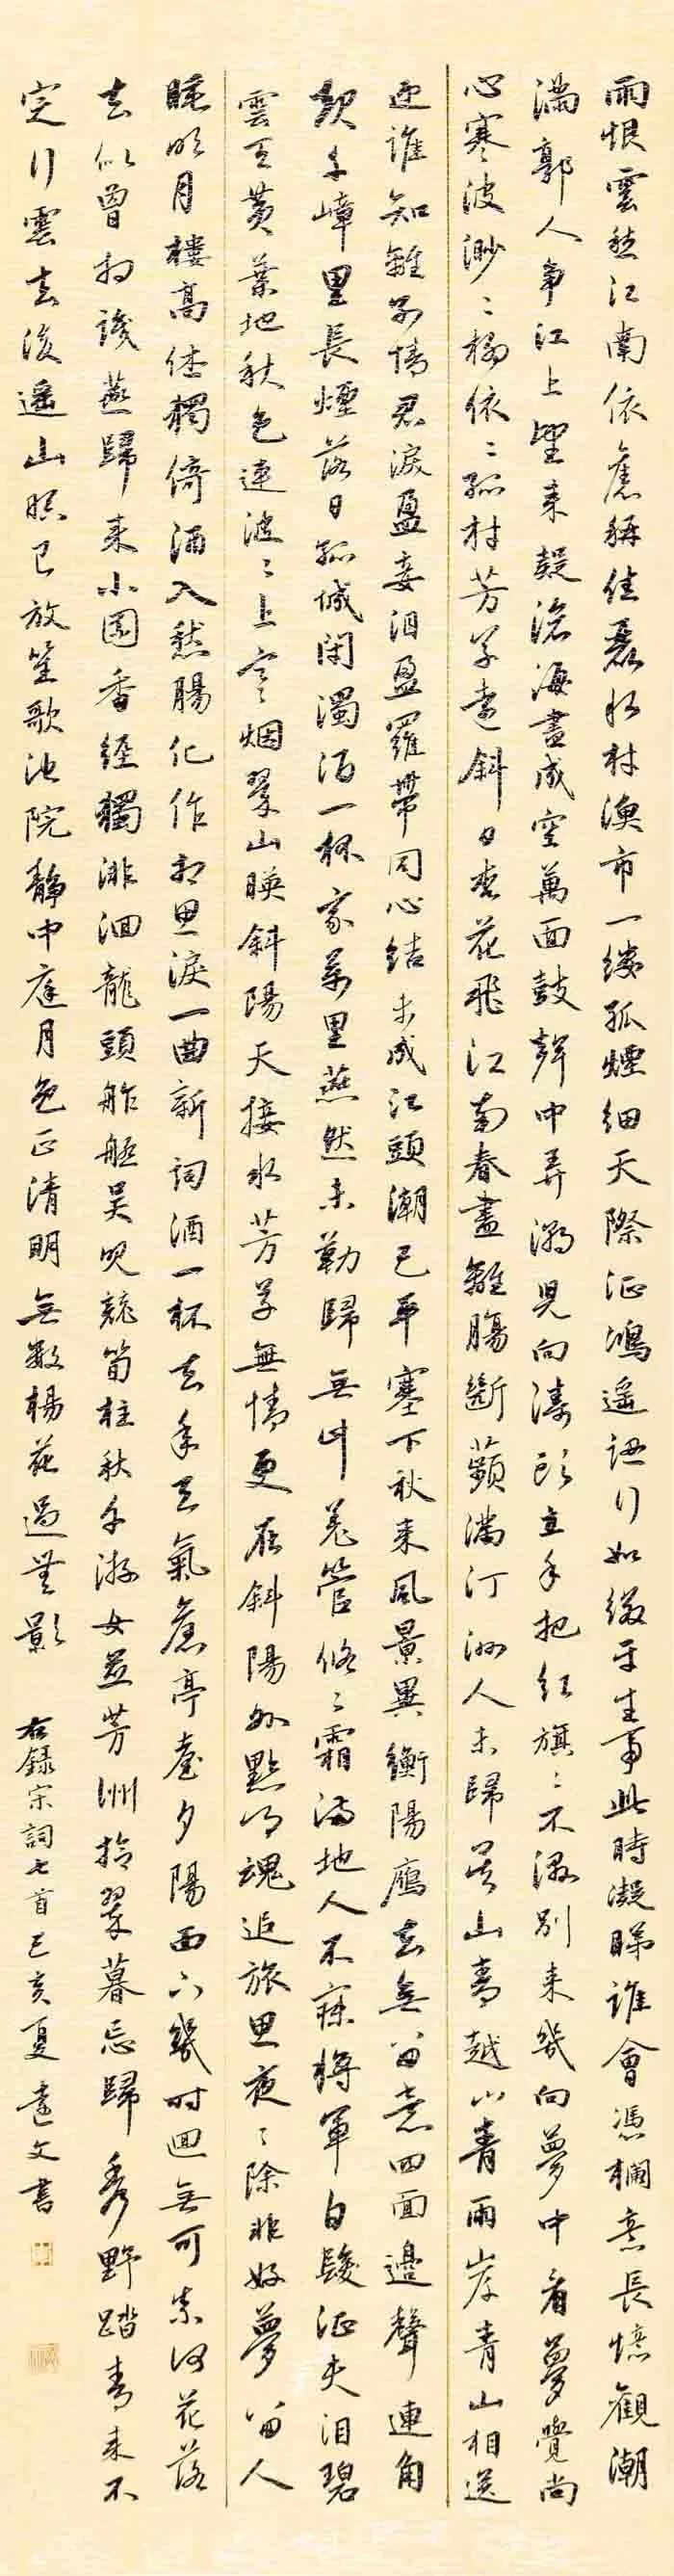 雨恨雲愁江南依舊稱佳麗水村漁市一縷孤煙細天際征鴻遙認行如綴平生事此時凝睇誰會憑欄意長憶觀潮
滿郭人爭江上望來疑滄海盡成空萬面鼓聲中弄濤兒向濤頭立手把紅旗旗不濕別來幾向夢中看夢覺尚
心寒波渺渺楊依依孤村芳草遠斜日杏花飛江南春盡離腸斷蘋滿汀洲人未歸吳山青越山青兩岸青山相送
迎誰知離別情君淚盈妾淚盈羅帶同心結未成江頭潮已平塞下秋來風景異衡陽雁去無留意四面邊聲連角
起千嶂里長煙落日孤城閉濁酒一杯家萬里燕然未勒歸無計羌管悠悠霜滿地人不寐將軍白髮征夫淚碧
雲天黃葉地秋色連波波上寒烟翠山映斜陽天接水芳草無情更在斜陽外黯鄉魂追旅思夜夜除非好夢留人
睡明月樓高休獨倚酒入愁腸化作相思淚一曲新詞酒一杯去年天氣舊亭臺夕陽西下幾時回無可奈何花落
去似曾相識燕歸來小園香徑獨徘徊龍頭舴艋吳兒競筍柱秋千游女並芳洲拾翠暮忘歸秀野踏青來不
定行雲去後遙山暝已放笙歌池院靜中庭月色正清明無數楊花過無影 右錄宋詞七首己亥夏遠文書